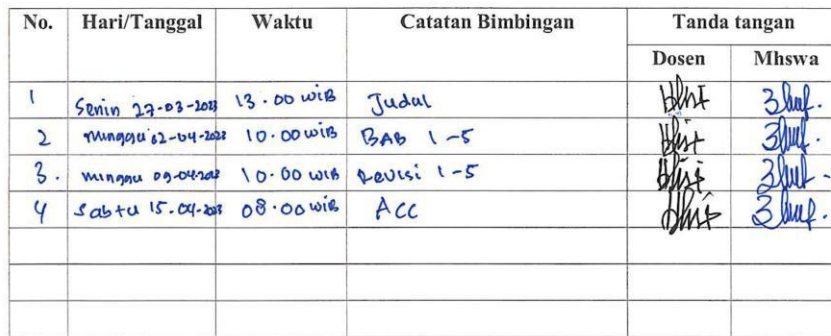 No. Hari/Tanggal Waktu Catatan Bimbingan Tanda tangan
Dosen Mhswa
1 Senin 27-03-2023 13.00 WIB Judul
2 Minggu 02-04-2023 10.00 WIB BAB 1-5
3. Minggu 09-04-2023 10.00 WIB Revisi 1-5
4 Sabtu 15-04-2023 08.00 WIB ACC